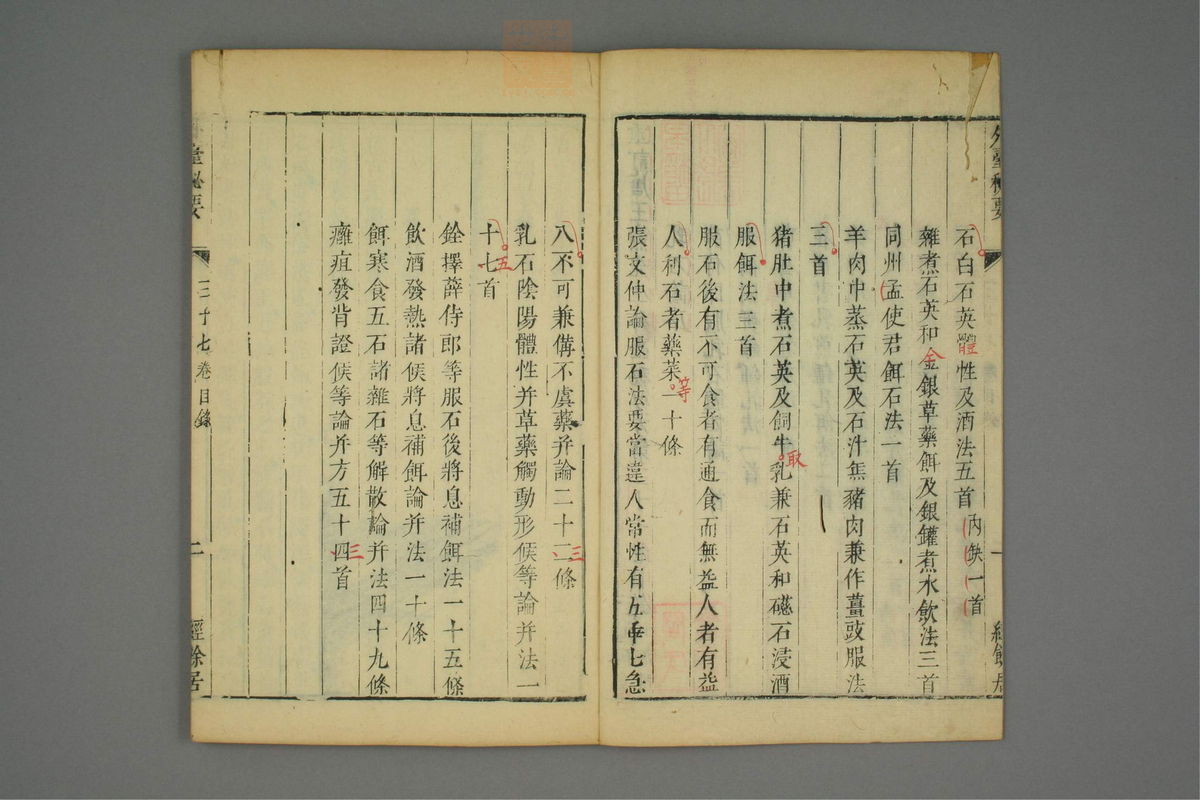 外臺秘要
一
經餘居
石白石英體性及酒法五首內缺一首
雜煮石英和金銀草藥餌及銀鑵煮水飲法三首
同州孟使君餌石法一首
羊肉中蒸石英及石汁煮豬肉兼作薑豉服法
三首
猪肚中煮石英及飼牛取乳兼石英和磁石浸酒
服餌法三首
服石後有不可食者有通食而無益人者有益
人利石者藥菜等一十條
張文仲論服石法要當違人常性有五乖七急
八不可兼備不虞藥并論二十二三條
乳石陰陽體性并草藥觸動形候等論并法一
十七五首
銓擇薛侍郎等服石後將息補餌法一十五條
飲酒發熱諸候將息補餌論并法一十條
餌寒食五石諸雜石等解散論并法四十九條
癰疽發背證候等論并方五十四三首
臺秘要
三十七卷目錄
二
經餘居